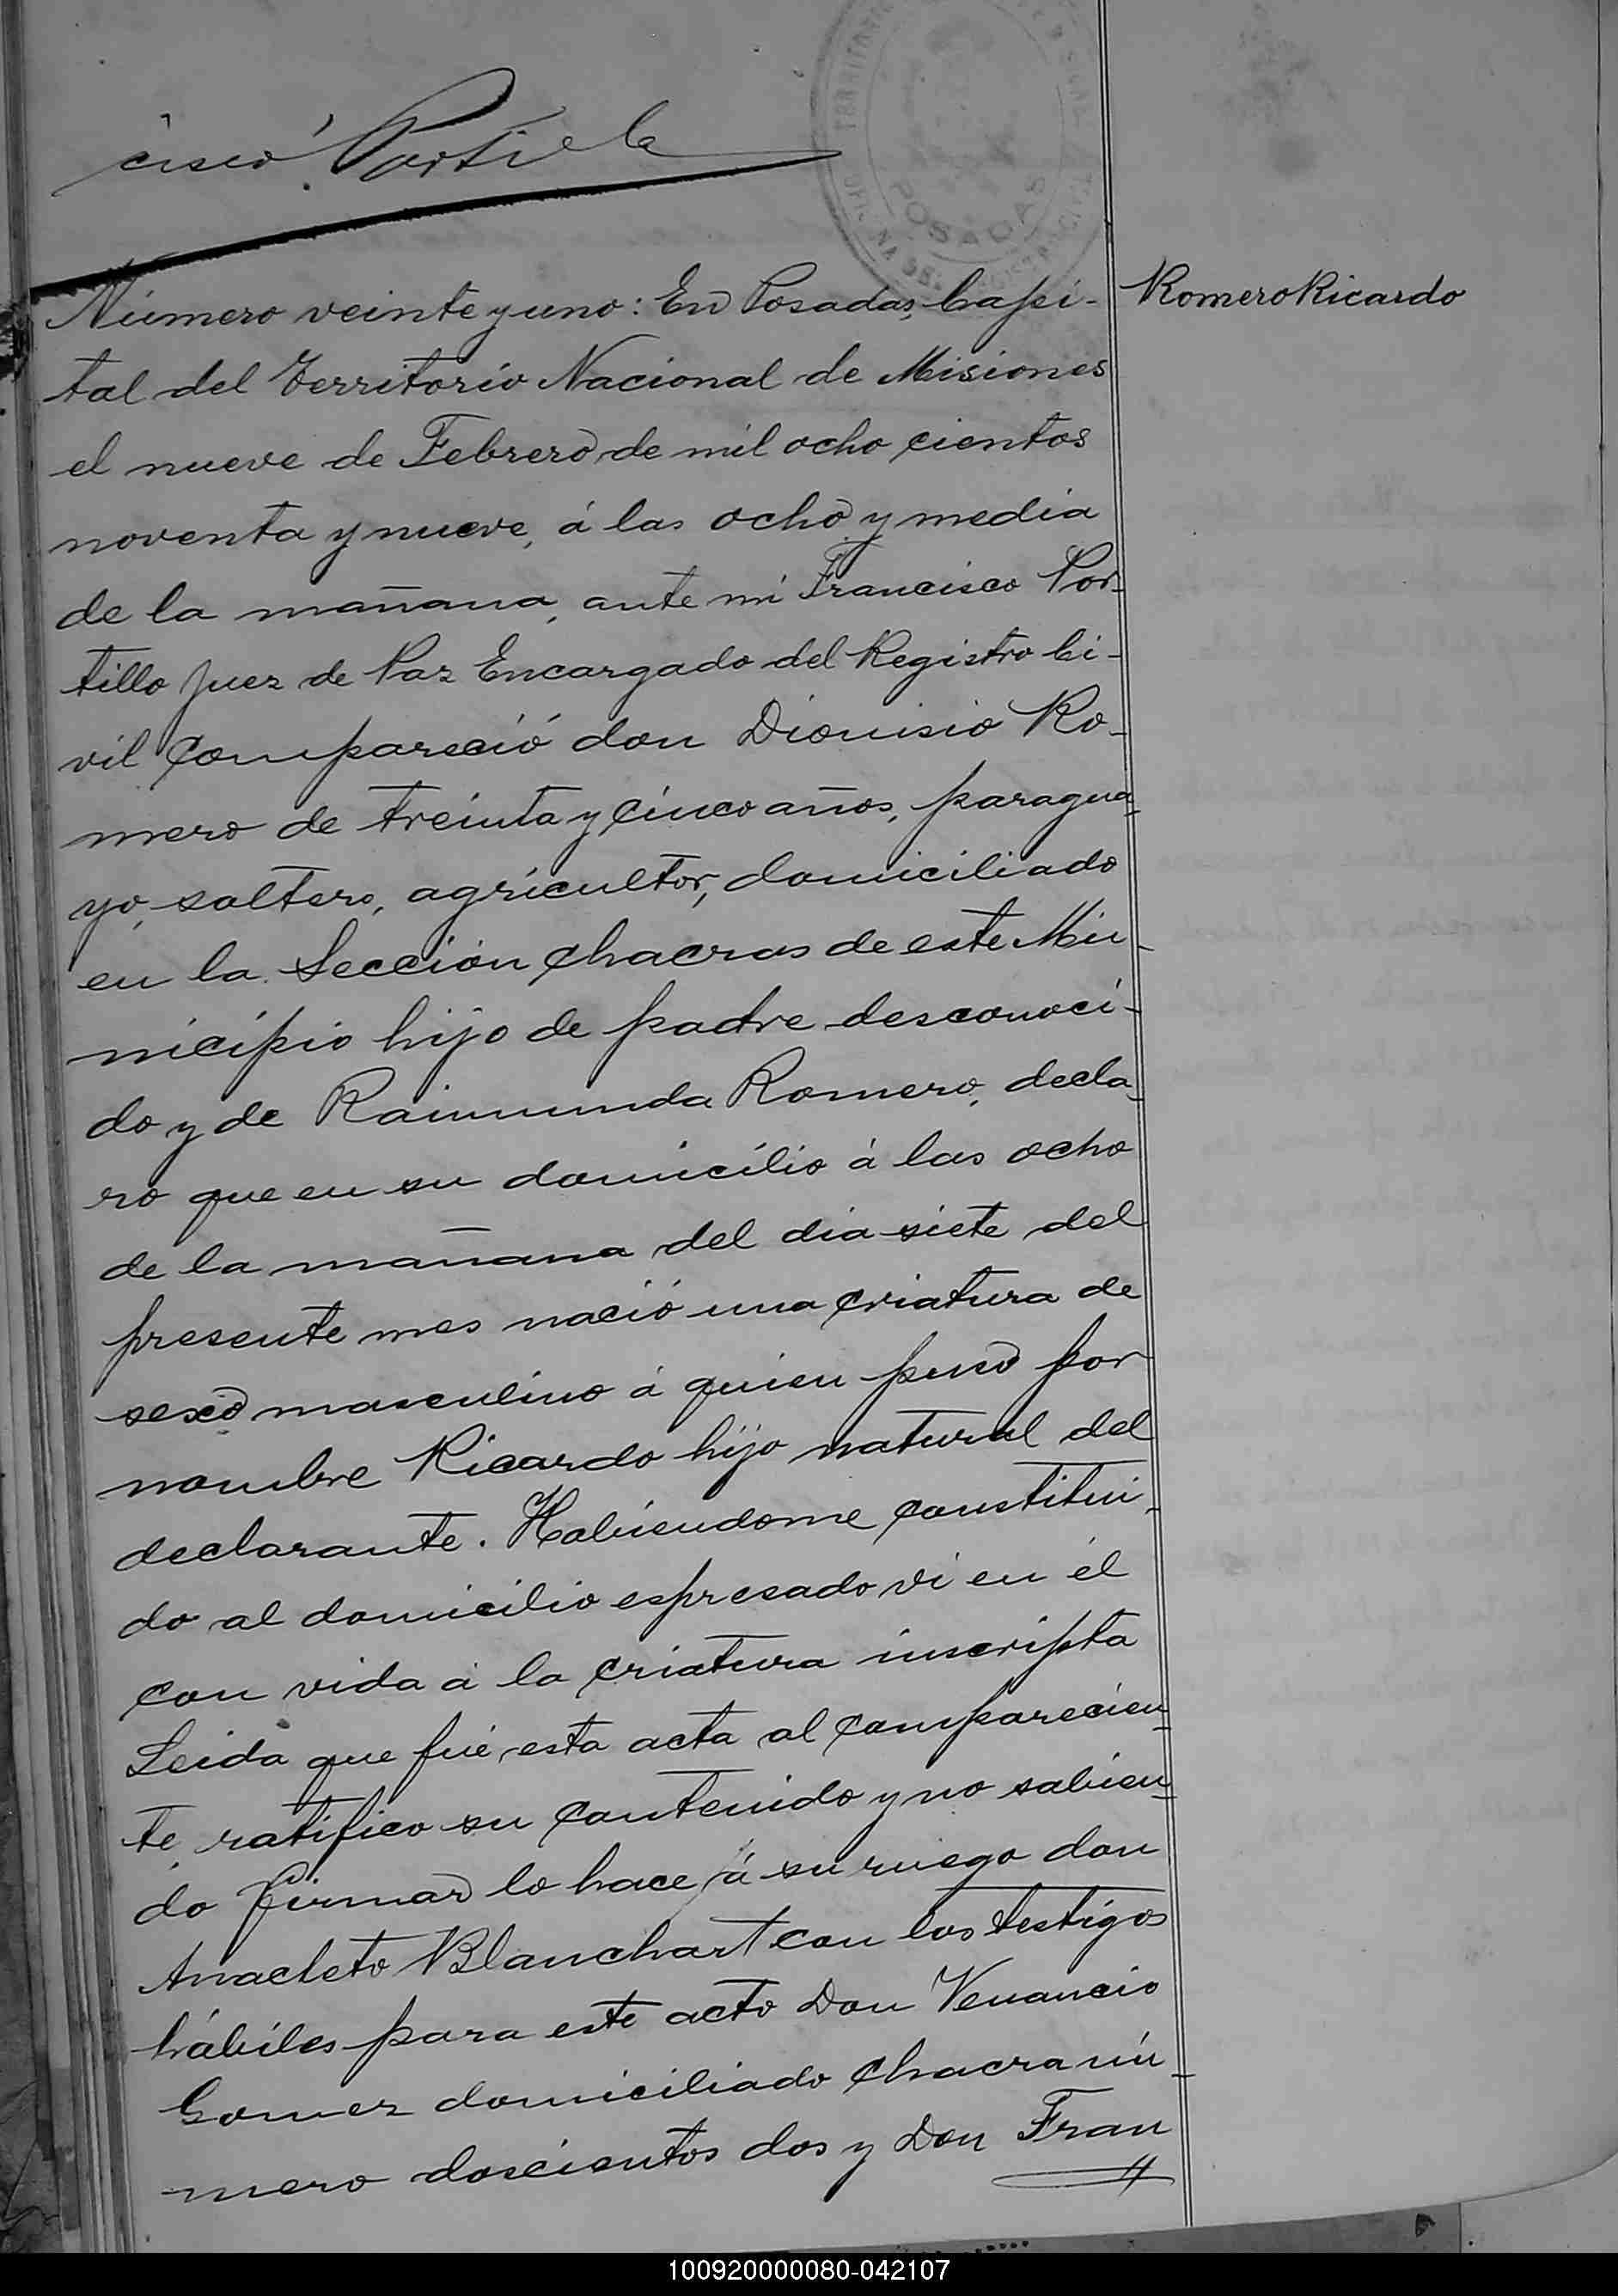 cisco Portillo
POSADAS
Número veinte y uno: En Posadas, Capi-
Romero Ricardo
tal del Territorio Nacional de Misiones
el nueve de Febrero de mil ocho cientos
noventa y nueve, á las ocho y media
de la mañana, ante mi Francisco Por-
tillo Juez de Paz Encargado del Registro Ci-
vil Compareció don Dionisio Ro-
mero de treinta y cinco años, paragua-
yo, soltero, agricultor, domiciliado
en la Sección chacras de este Mu-
nicipio hijo de padre desconoci-
do y de Raimunda Romero, decla-
ro que en su domicilio á las ocho
de la mañana del dia siete del
presente mes nació una criatura de
sexo masculino á quien puso por
nombre Ricardo hijo natural del
declarante. Habiendome constitui-
do al domicilio espresado vi en él
con vida á la criatura inscripta
Leida que fué esta acta al comparecien-
te, ratifico su contenido y no sabien-
do firmar lo hace á su ruego don
Anacleto Blanchart con los testigos
hábiles para este acto Don Venancio
Gomez domiciliado chacra nú-
mero doscientos dos y Don Fran
100920000080-042107